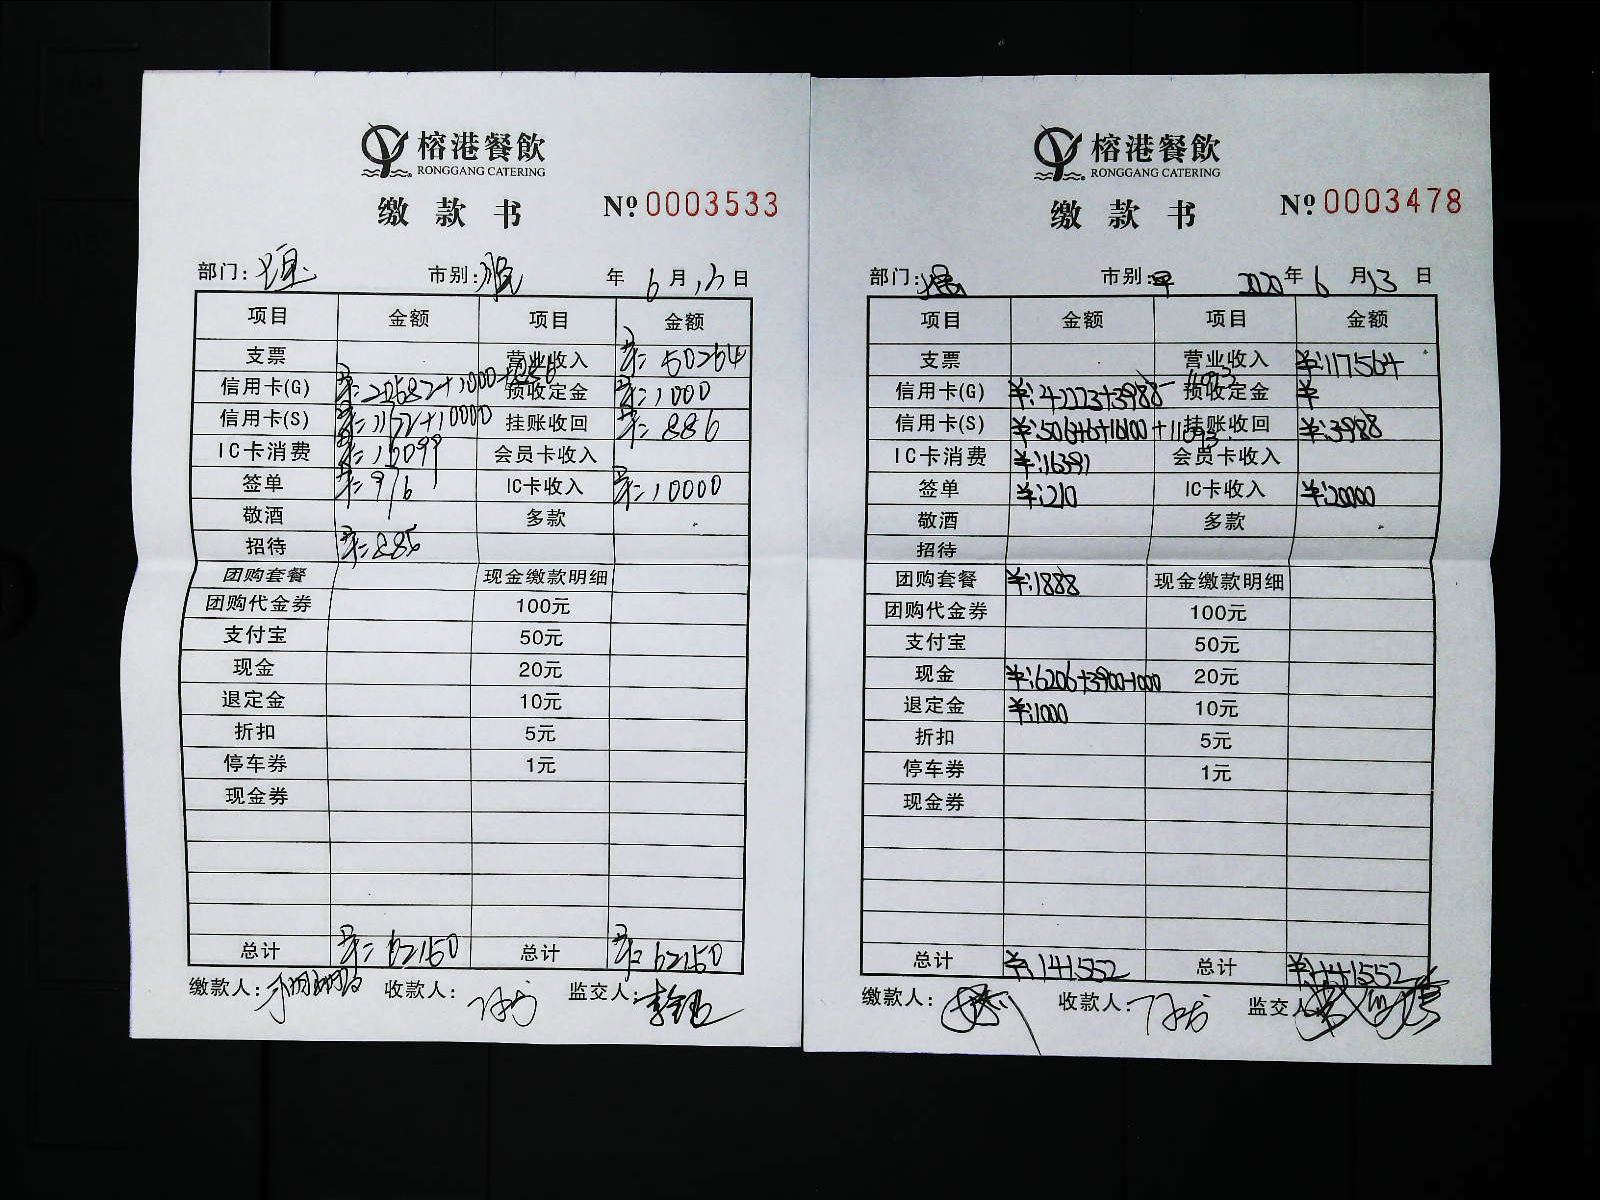 榕港餐飲
RONGGANG CATERING
缴款书
Nº 0003533
部门: 市别: 年 6 月 13 日
项目 金额 项目 金额
支票 营业收入 ¥:50264
信用卡(G) +1000+886 预收定金 ¥:1000
信用卡(S) +10000 挂账收回 ¥:886
IC卡消费 会员卡收入
签单 ¥:916 IC卡收入 ¥:10000
敬酒 多款
招待 ¥:885
团购套餐 现金缴款明细
团购代金券 100元
支付宝 50元
现金 20元
退定金 10元
折扣 5元
停车券 1元
现金券
总计 ¥:62150 总计 ¥:62150
缴款人: 收款人: 监交人:
榕港餐飲
RONGGANG CATERING
缴款书
Nº 0003478
部门: 市别:早 2020 年 6 月 13 日
项目 金额 项目 金额
支票 营业收入 ¥:117564
信用卡(G) ¥:42223+3988-11093 预收定金 ¥
信用卡(S) +11093 挂账收回 ¥:3988
IC卡消费 ¥:16391 会员卡收入
签单 ¥:210 IC卡收入 ¥:20000
敬酒 多款
招待
团购套餐 ¥:1888 现金缴款明细
团购代金券 100元
支付宝 50元
现金 ¥:6206+3900-1000 20元
退定金 ¥:1000 10元
折扣 5元
停车券 1元
现金券
总计 ¥:141552 总计 ¥:141552
缴款人: 收款人: 监交人: